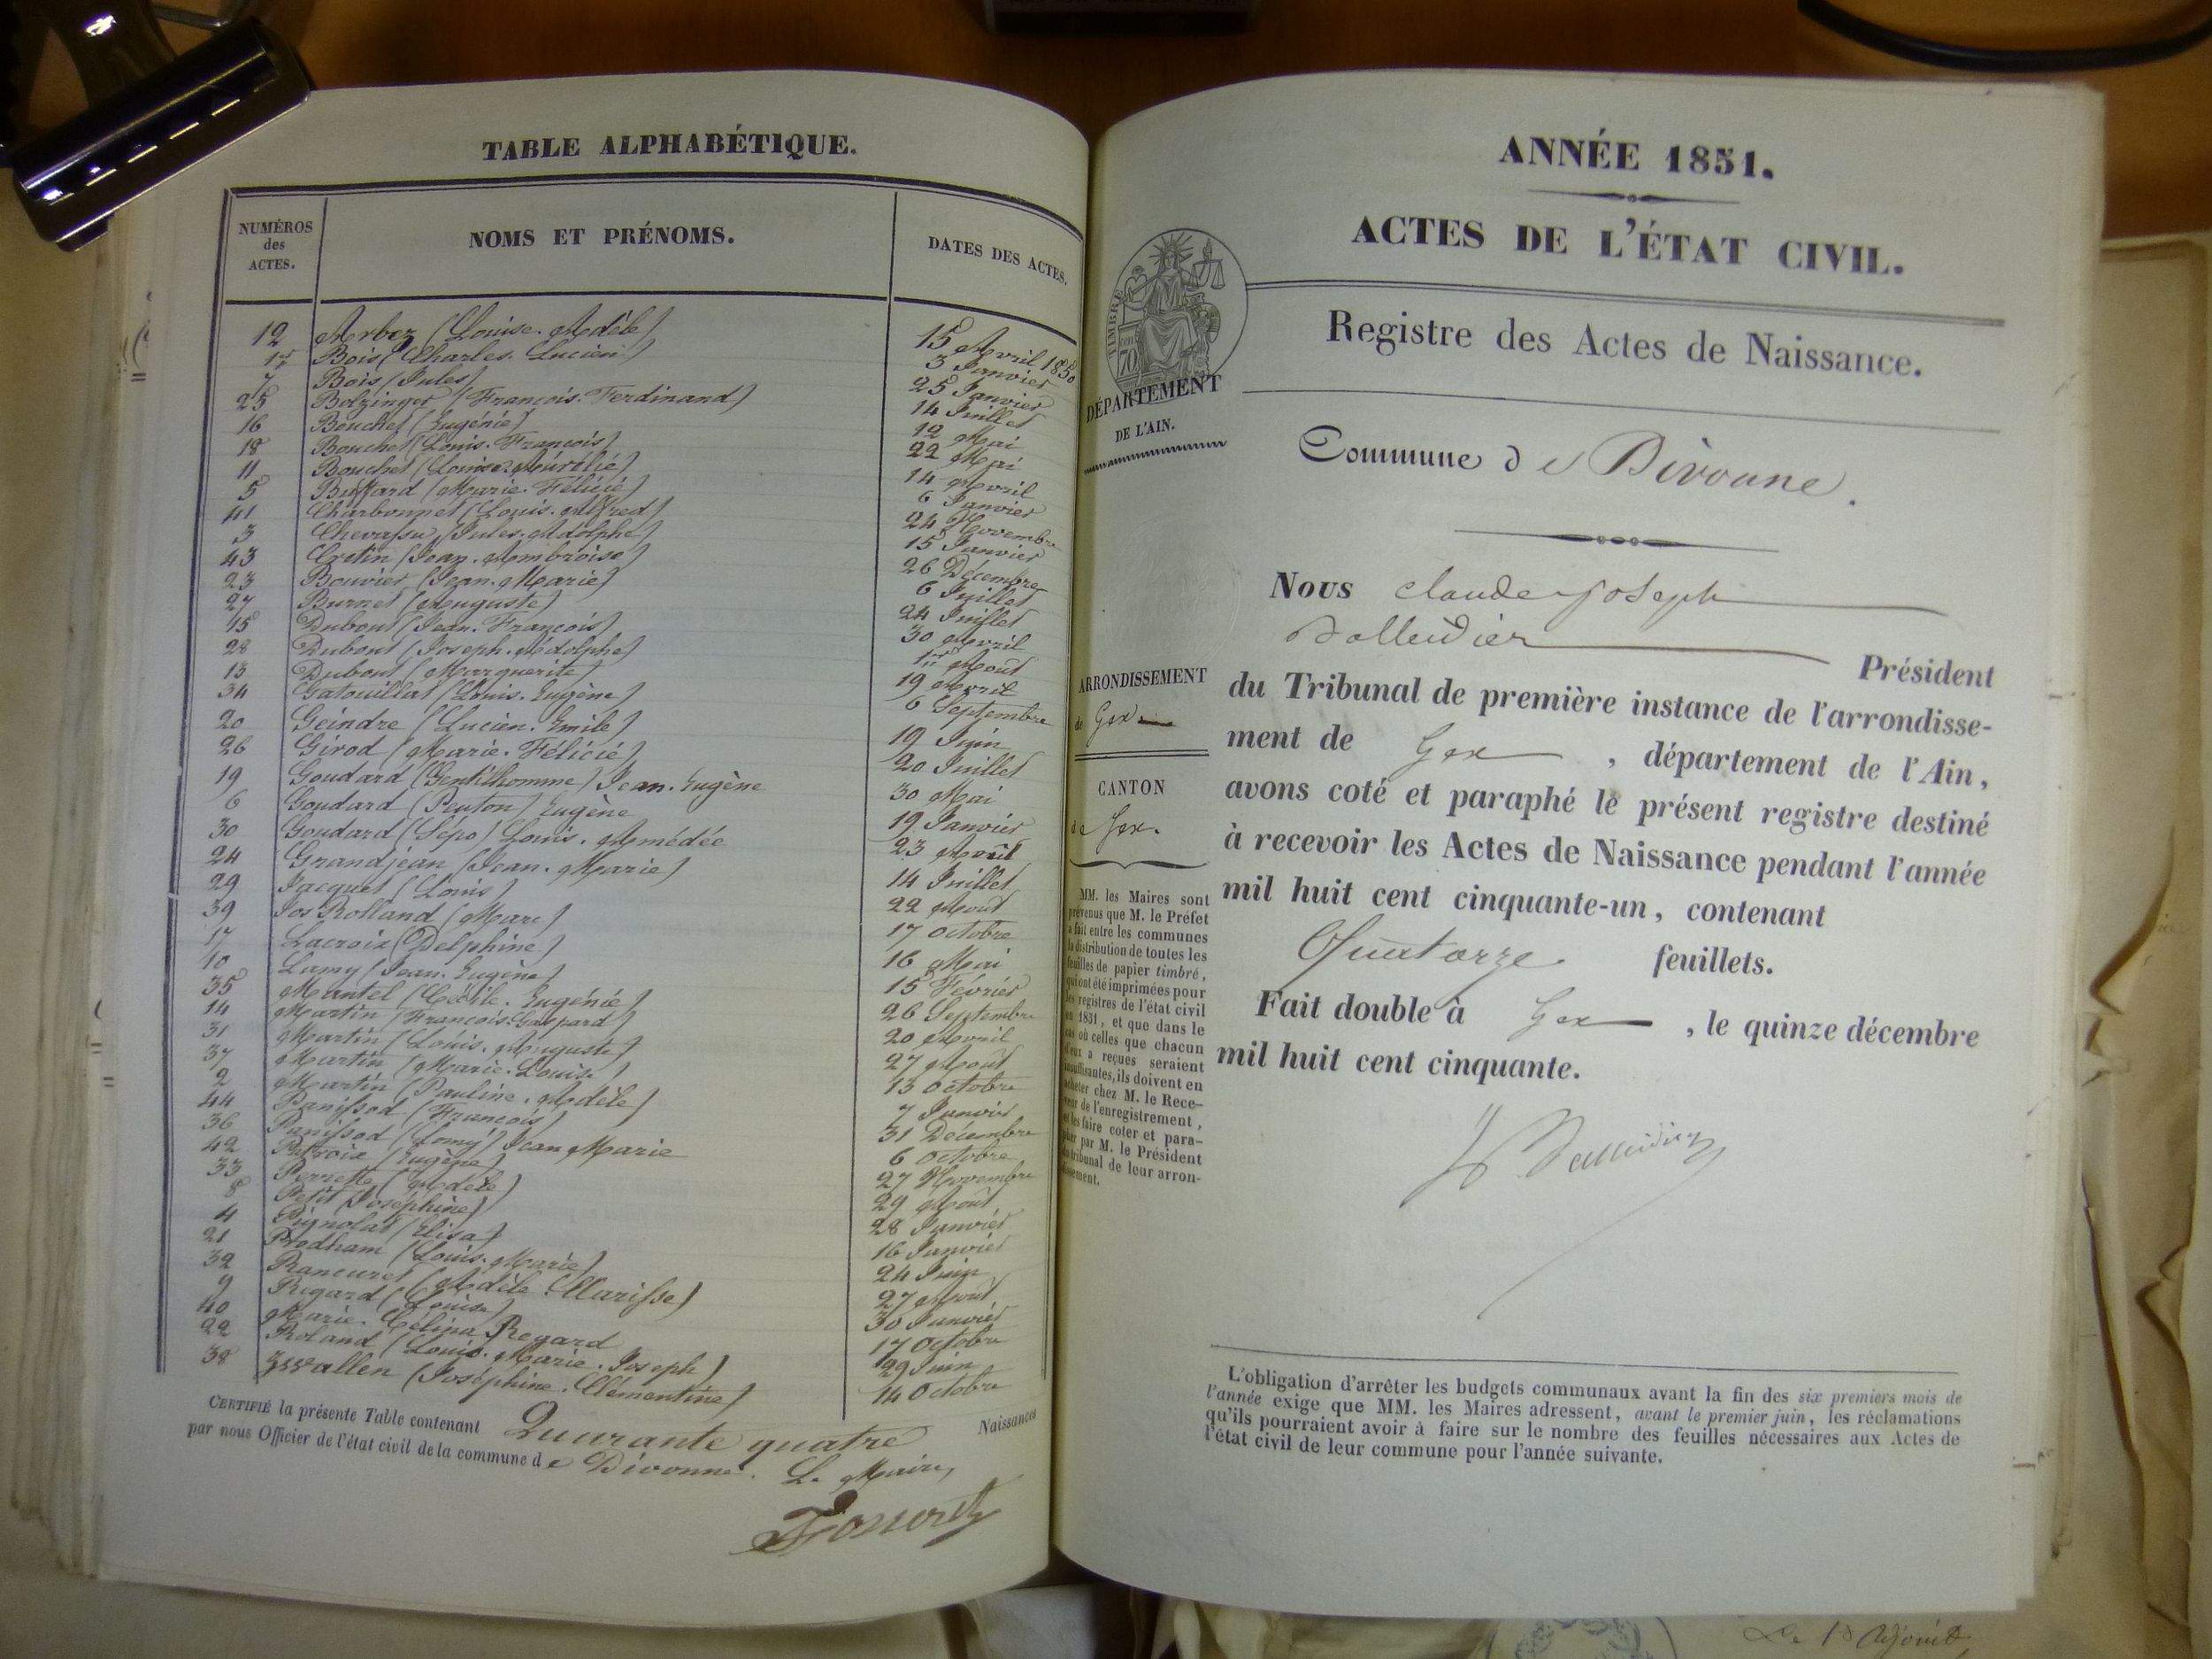 TABLE ALPHABÉTIQUE.
NUMÉROS des ACTES.
NOMS ET PRÉNOMS.
DATES DES ACTES.
12 Arbez (Louise. Adèle) 15 Avril 1850
1er Bois (Charles. Lucien) 3 Janvier
7 Bois (Jules) 25 Janvier
25 Bolzinger (François. Ferdinand) 14 Juillet
16 Bouchet (Eugénie) 12 Mai
18 Bouchet (Louis. François) 22 Mai
11 Bouchet (Louise. Aurélie) 14 Avril
5 Buffard (Marie. Félicie) 6 Janvier
41 Charbonnet (Louis. Alfred) 24 Novembre
3 Chevassu (Jules. Adolphe) 15 Janvier
43 Cretin (Jean. Ambroise) 26 Décembre
23 Bouvier (Jean. Marie) 6 Juillet
27 Burnet (Auguste) 24 Juillet
15 Dubout (Jean. François) 30 Avril
28 Dubout (Joseph. Adolphe) 1er Août
13 Dubout (Marguerite) 19 Avril
34 Gatouillat (Louis. Eugène) 6 Septembre
20 Geindre (Lucien. Emile) 19 Juin
26 Girod (Marie. Félicie) 20 Juillet
19 Goudard (Gentilhomme) Jean. Eugène 30 Mai
6 Goudard (Penton) Eugène 19 Janvier
30 Goudard (Sépo) Louis. Amédée 23 Août
24 Grandjean (Jean. Marie) 14 Juillet
29 Jacquet (Louis) 22 Août
39 Jos Rolland (Marc) 17 Octobre
17 Lacroix (Delphine) 16 Mai
10 Lamy (Jean. Eugène) 15 Février
35 Mantel (Cécile. Eugénie) 26 Septembre
14 Martin (François. Gaspard) 20 Avril
31 Martin (Louis. Auguste) 27 Août
37 Martin (Marie. Louise) 13 Octobre
2 Martin (Pauline. Adèle) 7 Janvier
44 Panissod (François) 31 Décembre
36 Panissod (Lomy) Jean Marie 6 Octobre
42 (Eugène) 27 Novembre
33 Perrette (Adèle) 29 Août
8 Petit (Joséphine) 28 Janvier
4 Pignolat (Elisa) 16 Janvier
21 Prodham (Louis. Marie) 24 Juin
32 Rancuret (Adèle Clarisse) 27 Août
9 Rigard (Louise) 30 Janvier
40 Marie. Célina Regard 17 Octobre
22 Roland (Louis. Marie. Joseph) 29 Juin
38 Zswallen (Joséphine. Clémentine) 14 Octobre
CERTIFIÉ la présente Table contenant Quarante quatre Naissances
par nous Officier de l'état civil de la commune de Divonne. Le Maire,
ANNÉE 1851.
ACTES DE L'ÉTAT CIVIL.
Registre des Actes de Naissance.
TIMBRE
70
DÉPARTEMENT
DE L'AIN.
Commune de Divonne.
Nous Claude Joseph
Balleidier
Président
du Tribunal de première instance de l'arrondisse-
ment de Gex, département de l'Ain,
avons coté et paraphé le présent registre destiné
à recevoir les Actes de Naissance pendant l'année
mil huit cent cinquante-un, contenant
Quatorze feuillets.
Fait double à Gex, le quinze décembre
mil huit cent cinquante.
ARRONDISSEMENT
de Gex
CANTON
de Gex.
MM. les Maires sont
prévenus que M. le Préfet
a fait entre les communes
la distribution de toutes les
feuilles de papier timbré,
qui ont été imprimées pour
les registres de l'état civil
en 1851, et que dans le
cas où celles que chacun
d'eux a reçues seraient
insuffisantes, ils doivent en
acheter chez M. le Rece-
veur de l'enregistrement,
et les faire coter et para-
pher par M. le Président
du tribunal de leur arron-
dissement.
L'obligation d'arrêter les budgets communaux avant la fin des six premiers mois de
l'année exige que MM. les Maires adressent, avant le premier juin, les réclamations
qu'ils pourraient avoir à faire sur le nombre des feuilles nécessaires aux Actes de
l'état civil de leur commune pour l'année suivante.